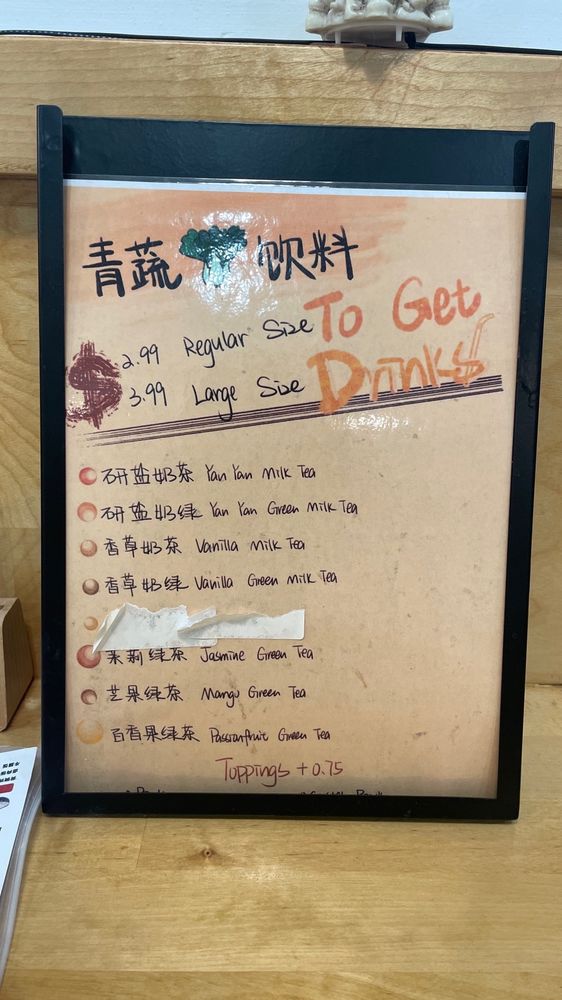 青蔬 饮料
To Get
Drinks
$ 2.99 Regular Size
3.99 Large Size
研盐奶茶 Yan Yan Milk Tea
研盐奶绿 Yan Yan Green Milk Tea
香草奶茶 Vanilla Milk Tea
香草奶绿 Vanilla Green Milk Tea
茉莉绿茶 Jasmine Green Tea
芒果绿茶 Mango Green Tea
百香果绿茶 Passionfruit Green Tea
Toppings +0.75